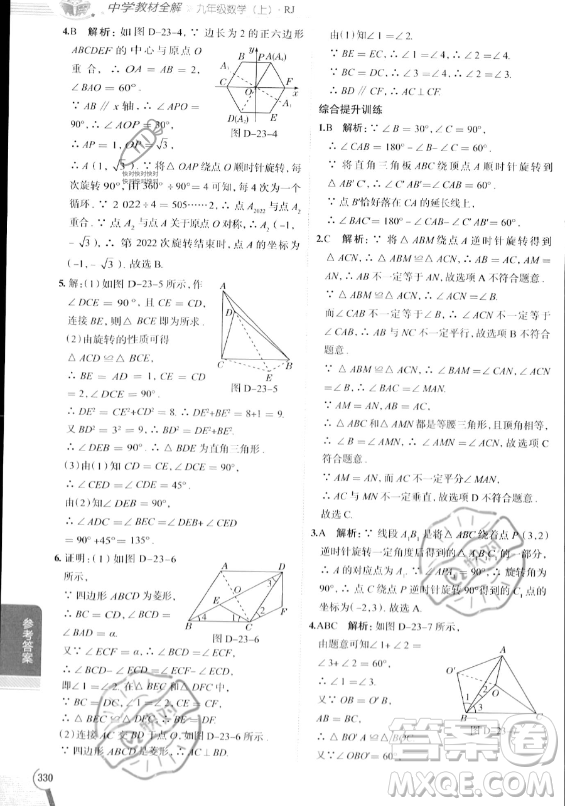 中学教材全解 九年级数学(上)·RJ
4.B 解析:如图D-23-4,∵边长为2的正六边形
ABCDEF的中心与原点O
重合,∴OA=AB=2,
∠BAO=60°.
∵AB∥x轴,∴∠APO=
90°,∴∠AOP=30°,
∴AP=1,OP=√3,
∴A(1,√3),∵将△OAP绕点O顺时针旋转,每
次旋转90°,由360°÷90°=4可知,每4次为一个
循环.∵2 022÷4=505……2,∴点A2022与点A2
重合.∵点A2与点A关于原点O对称,∴A2(-1,
-√3),∴第2022次旋转结束时,点A的坐标为
(-1,-√3).故选B.
图D-23-4
5.解:(1)如图D-23-5所示,作
∠DCE=90°,且CE=CD,
连接BE,则△BCE即为所求.
(2)由旋转的性质可得
△ACD≌△BCE,
∴BE=AD=1,∵CE=CD=
2,∠DCE=90°,
∴DE²=CE²+CD²=8,∴BE²+DE²=8+1=9.
又BD²=3²=9,∴BE²+DE²=BD²,
∴∠DEB=90°,∴△BDE为直角三角形.
(3)由(1)知CD=CE,∠DCE=90°,
∴∠CED=45°.
由(2)知∠DEB=90°,
∴∠ADC=∠BEC=∠DEB+∠CED
=90°+45°=135°.
图D-23-5
6.证明:(1)如图D-23-6
所示,
∵四边形ABCD为菱形,
∴BC=CD,∠BCD=
∠BAD=α.
又∵∠ECF=α,∴∠BCD=∠ECF,
∴∠BCE=∠DCF.
(2)连接BD,如图D-23-6所示.
∵四边形ABCD是菱形,∴AC⊥BD.
图D-23-6
又
∵BE=AC,∴∠4=∠1,∴∠2=∠1.
∵BC=DC,∴∠2=∠3,∴∠1=∠3,
∴BD∥CF,∴AC⊥CF.
综合提升训练
1.B 解析:∵∠B=30°,∠C=90°,
∴∠CAB=180°-∠B-∠C=60°.
∵将直角三角板ABC绕顶点A顺时针旋转得到
△AB'C',∴∠C'AB'=∠CAB=60°.
∵点B'恰好落在CA的延长线上,
∴∠BAC'=180°-∠CAB-∠C'AB'=60°.
2.C 解析:∵将△ABM绕点A逆时针旋转得到
△ACN,∴△ABM≌△ACN,∴AM=AN,
∴AB不一定等于AN,故选项A不符合题意.
∵△ABM≌△ACN,∴∠ACN=∠B.
而∠CAB不一定等于∠B,∴∠ACN不一定等于
∠CAB,∴AB与CN不一定平行,故选项B不符
合题意.
∵△ABM≌△ACN,∴∠BAM=∠CAN,
∠ABC=∠ACN.
∵AM=AN,AB=AC,
∴△ABC和△AMN都是等腰三角形,且顶角相
等,∴∠B=∠AMN,∴∠AMN=∠ACN,故选
项C符合题意.
∵AM=AN,而AC不一定平分∠MAN,
∴AC与MN不一定垂直,故选项D不符合题意.
故选C.
3.A 解析:∵线段A1B1是将△ABC绕着点P(3,2)
逆时针旋转一定角度后得到的△A1B1C1的一部分,
∴A的对应点为A1,∵∠APA1=90°,∴旋转角为
90°,∴点C绕点P逆时针旋转90°得到的C1点坐
标为(-2,3).故选A.
4.ABC 解析:如图D-23-7所示,
由题意可知∠1+∠2=
∠3+∠2=60°,
∴∠1=∠3.
又∵OB=O'B,
AB=BC,
∴△BO'A≌△BOC,
又∵∠OBO'=60°,
图D-23-7
参考答案
330
答案圈
MXQE.COM